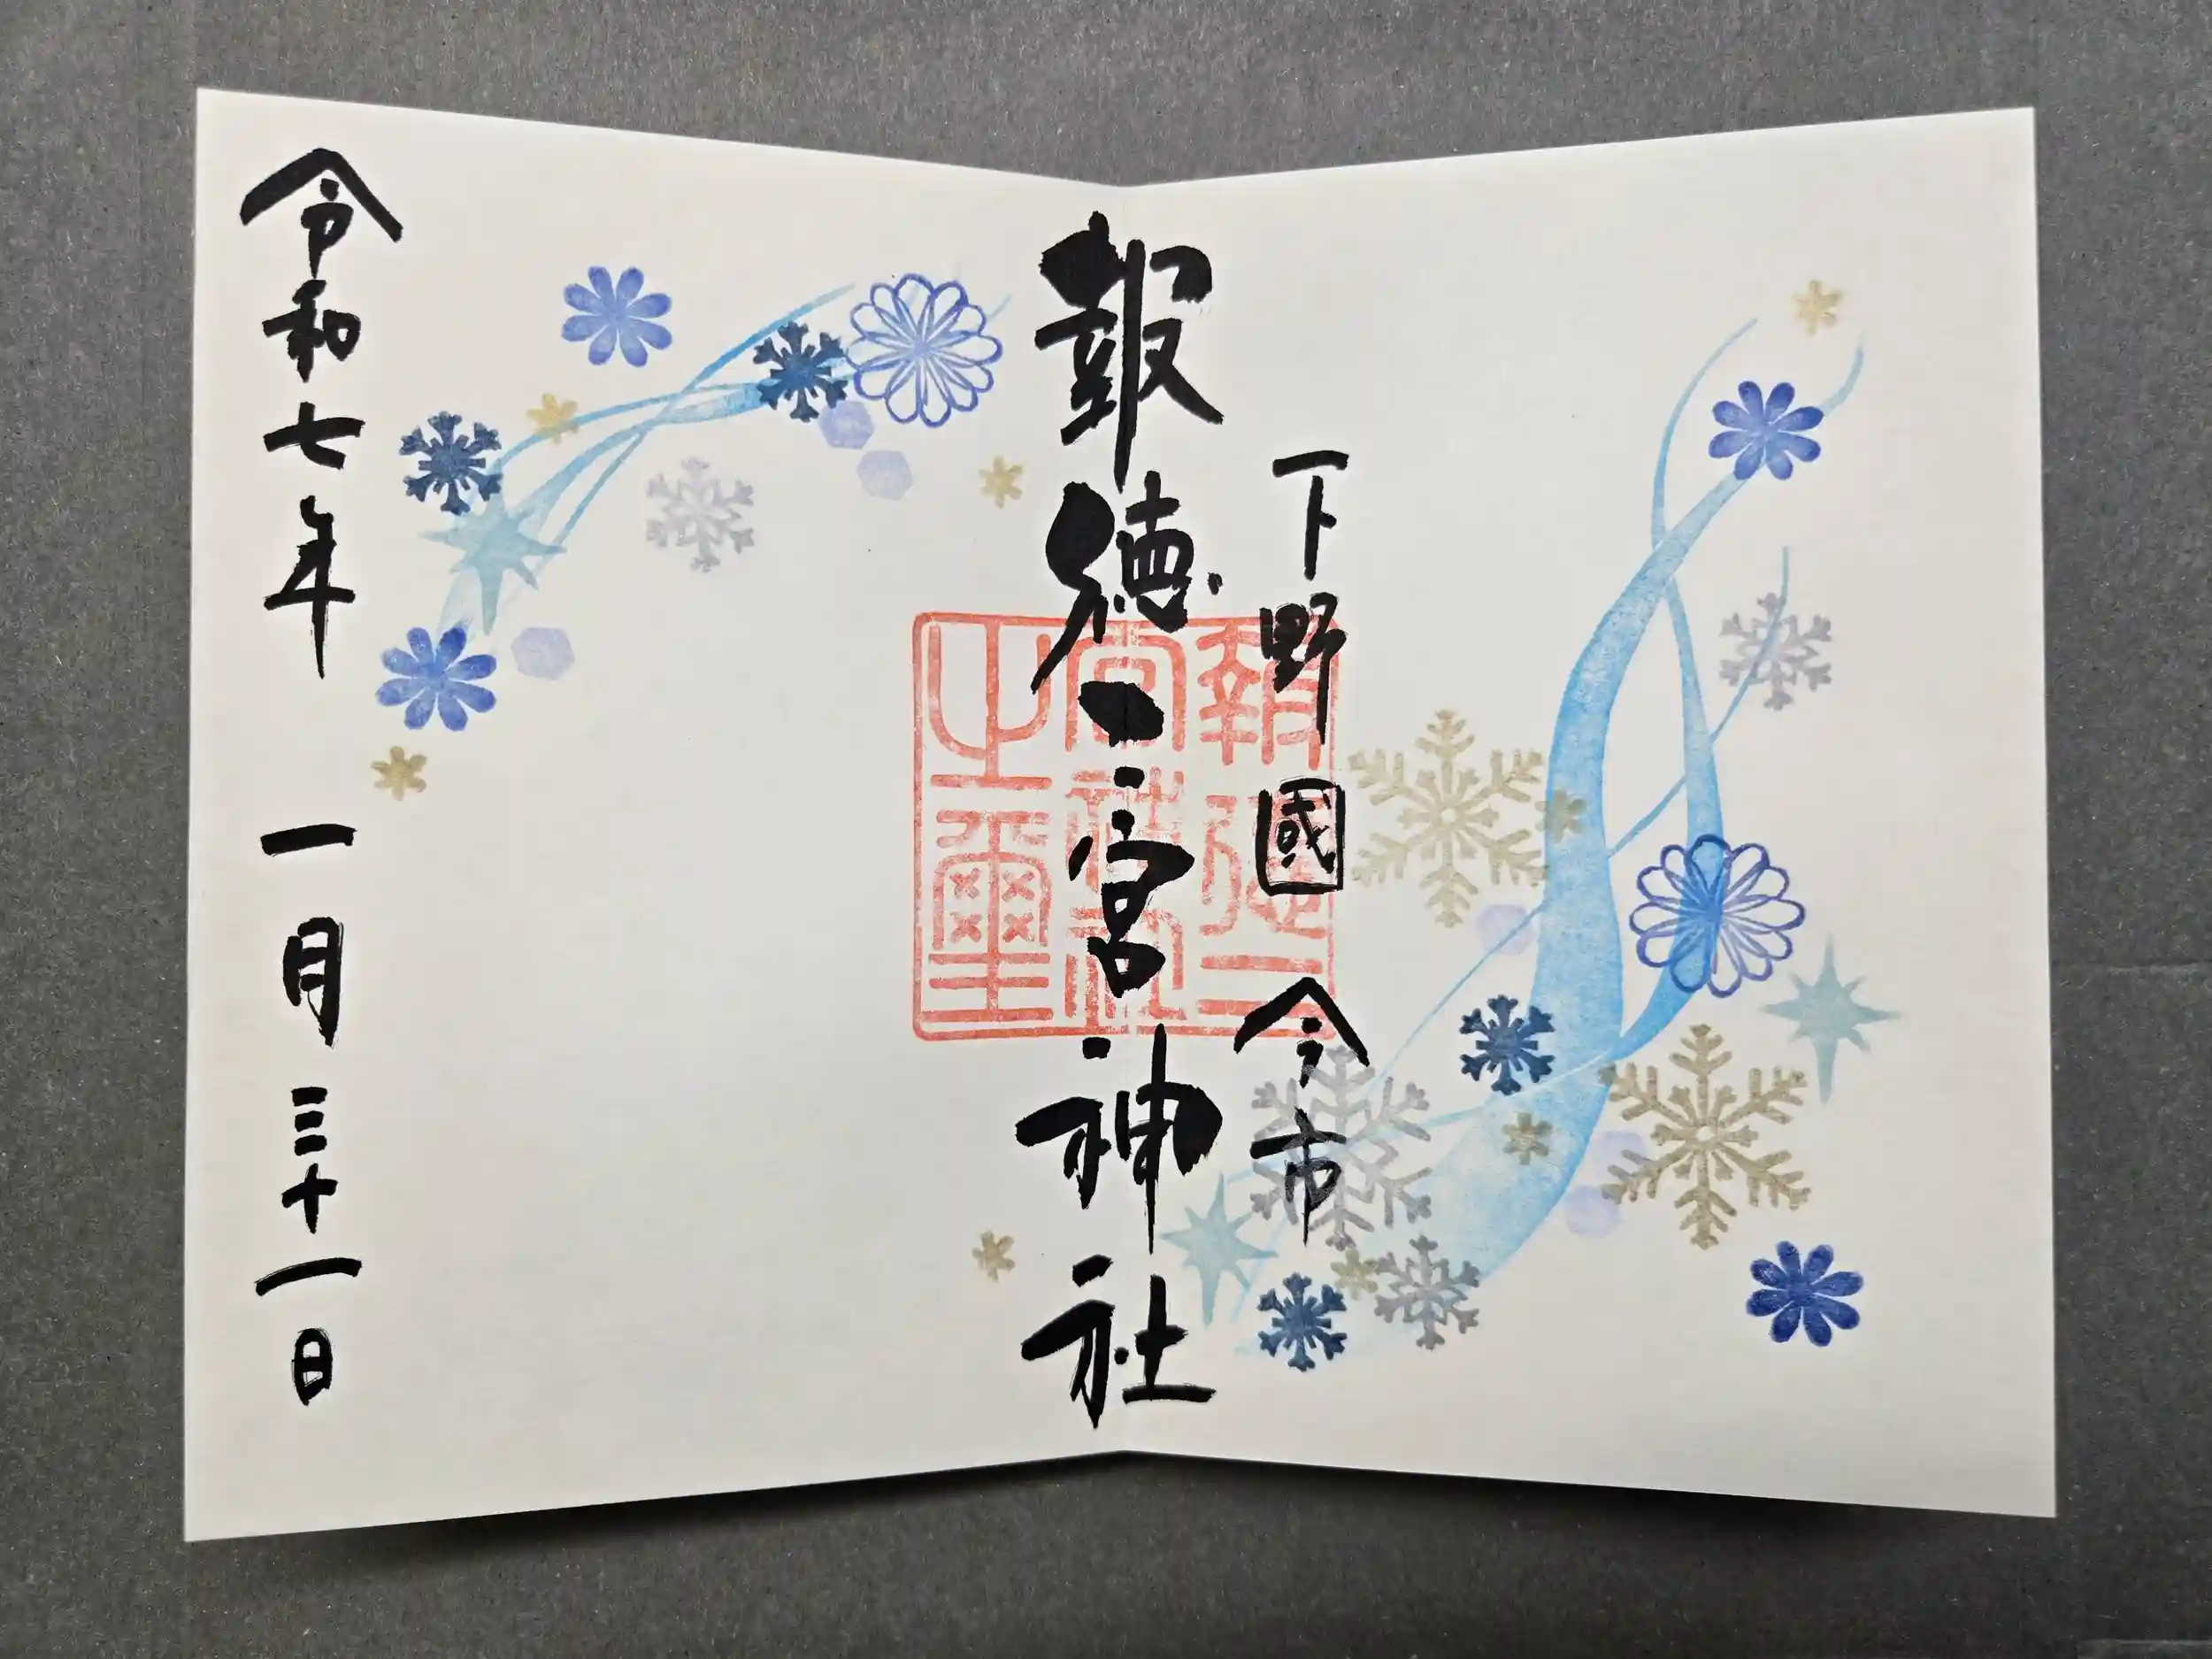 下野國 今市
報徳二宮神社
報徳二宮神社之璽
令和七年 一月三十一日